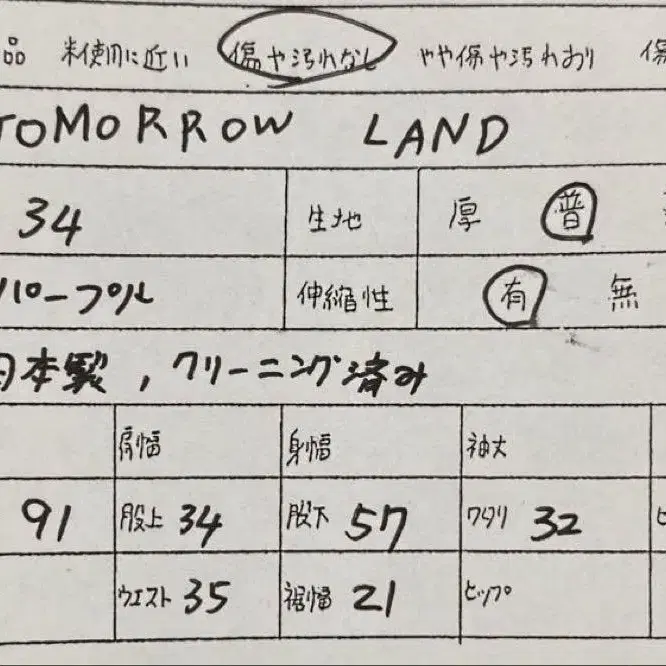 品 未使用に近い 傷や汚れなし やや傷や汚れあり 傷
TOMORROW LAND
34 生地 厚 普
パープル 伸縮性 有 無
日本製, クリーニング済み
肩幅 身幅 袖丈
91 股上 34 股下 57 ワタリ 32 ヒ
ウエスト 35 裾幅 21 ヒップ